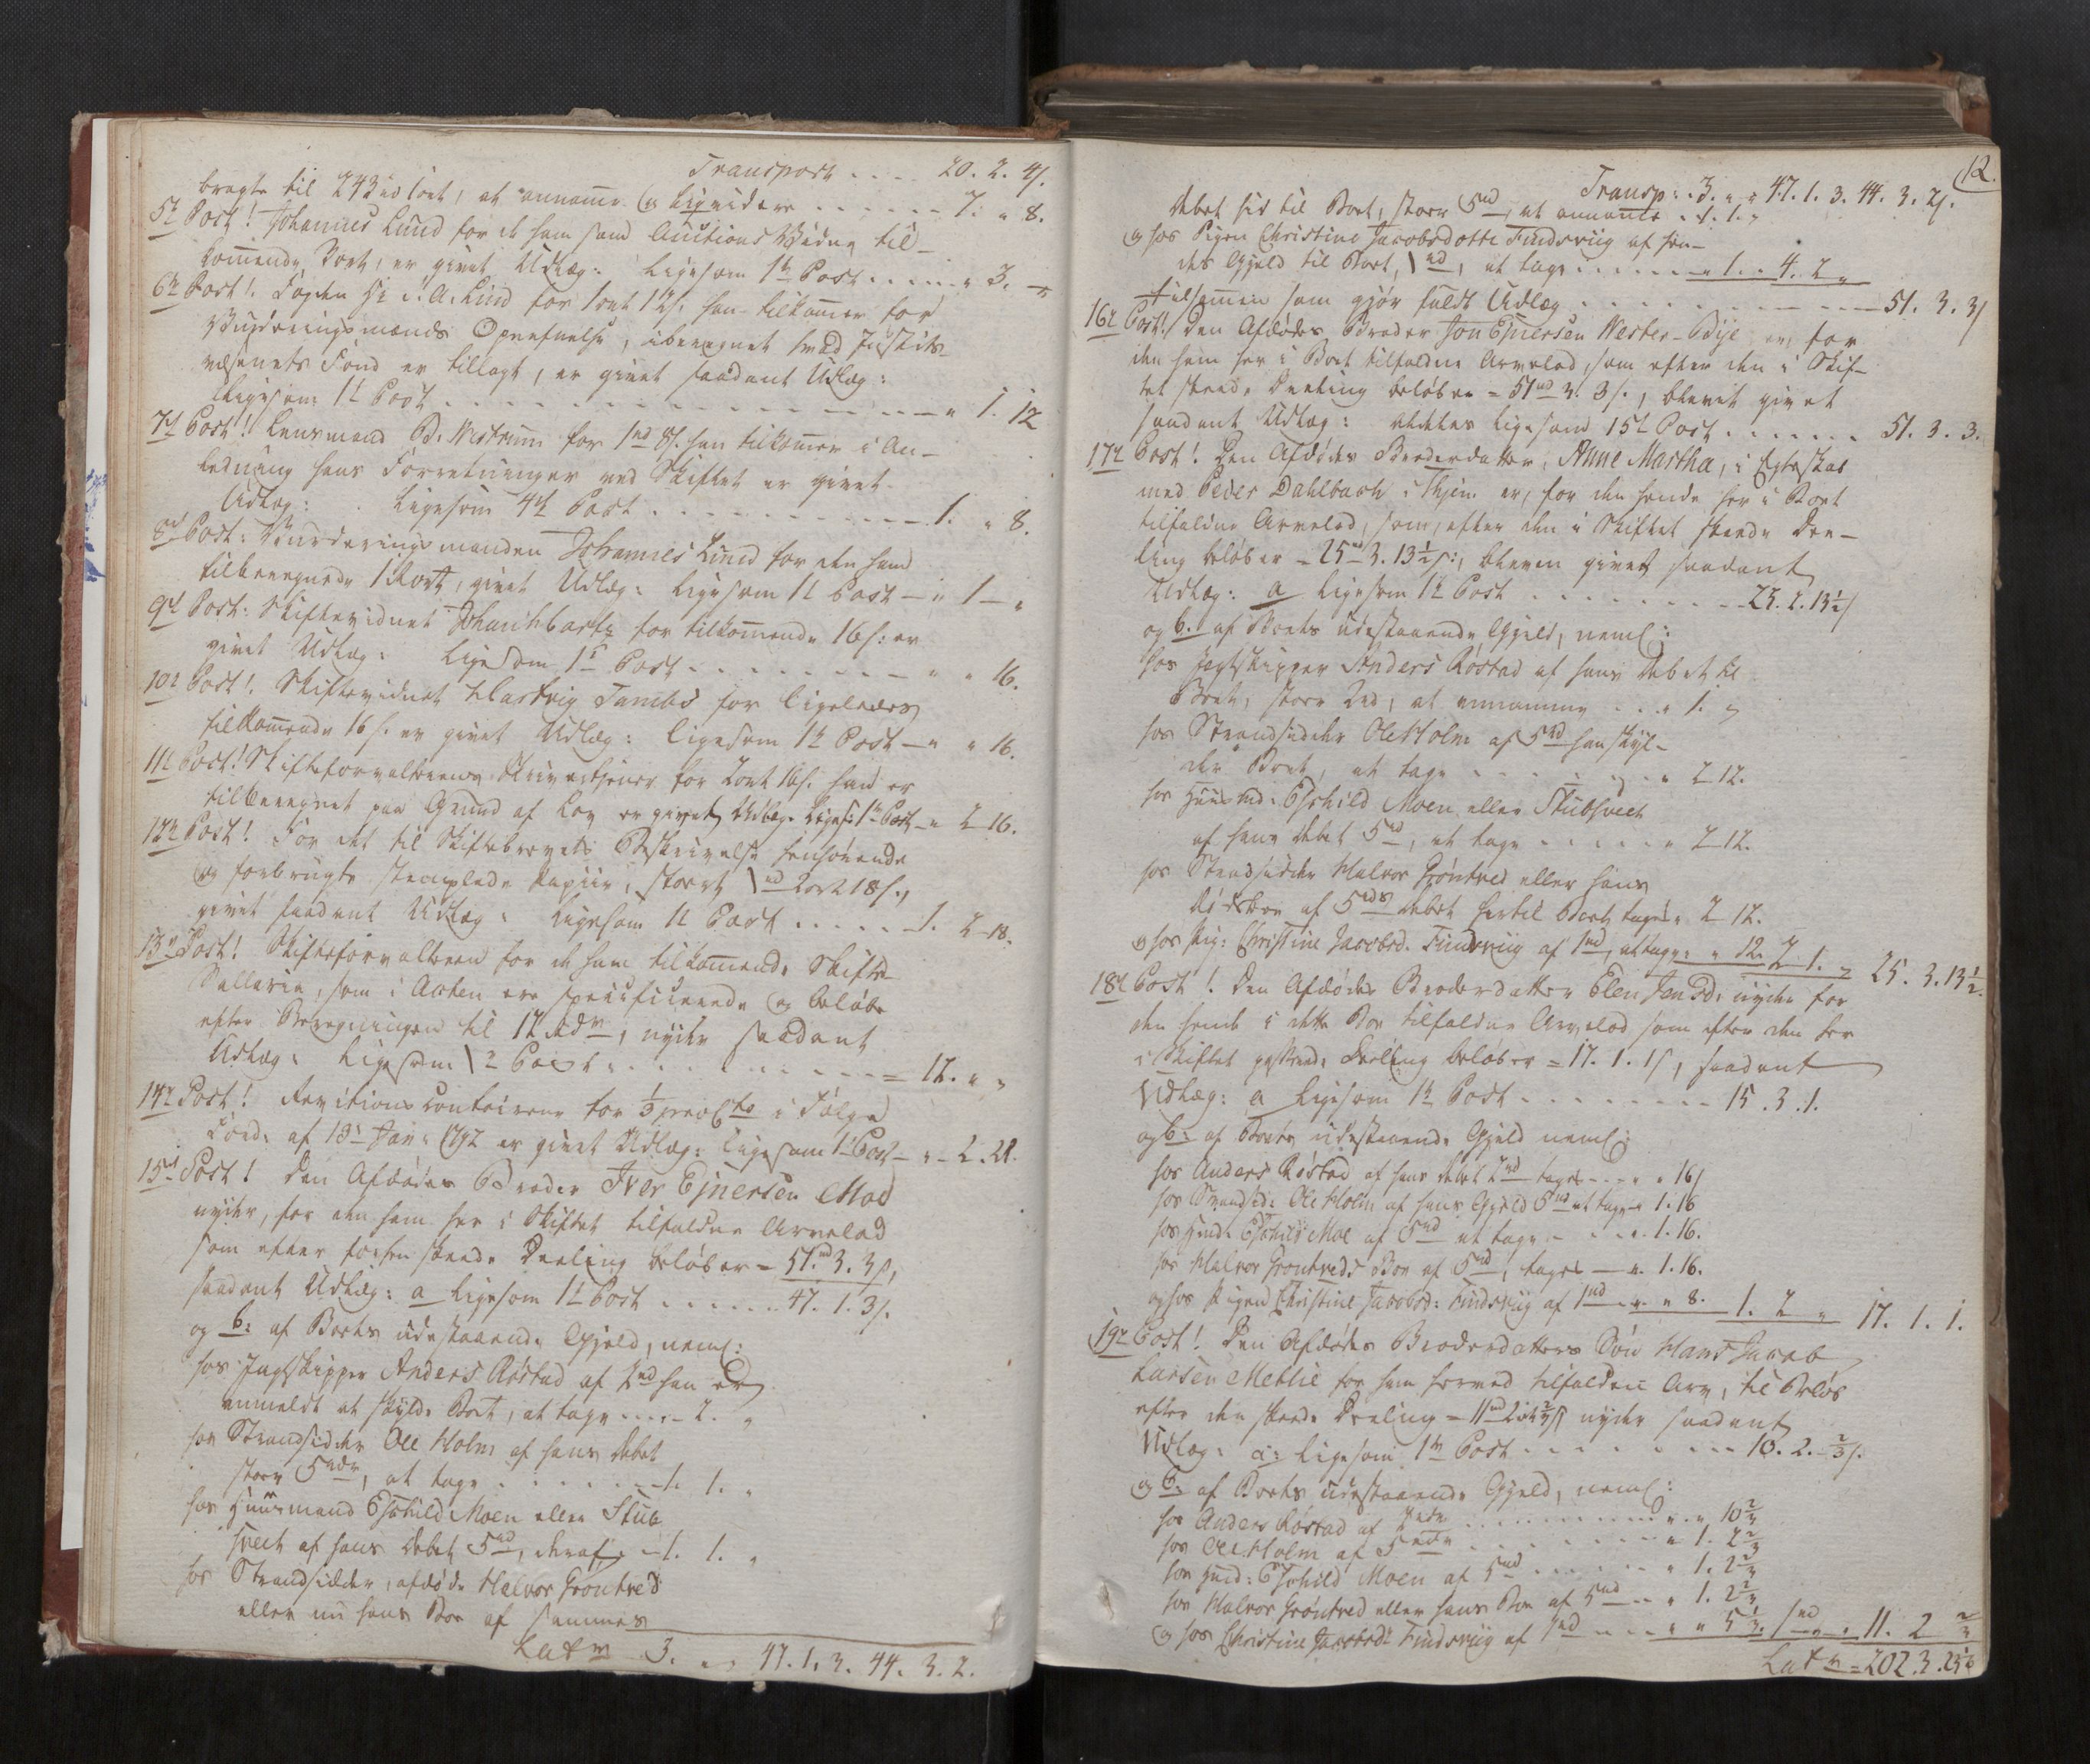 Transport . . . . 20. 2. 4s.
bragte til 243 at annamme og liquidere . . . . . . 7. " 8.
5te Post! Johannes Lund for de ham som Auctions Vidne til-
kommende 3ort, er givet Udlæg: Ligesom 1te Post . . . . . " 3. "
6te Post! Fogden Hr A. Lund for 1ort 12s. han tilkommer for
Vurderingsmænds Opnefnelse, iberegnet hvad Justits-
væsenets Fond er tillagt, er givet saadant Udlæg:
Ligesom 1te Post . . . . . . . . . . . . " 1. 12
7de Post! Lensmand B. Westrum for 1rd 8s. han tilkommer i An-
ledning hans Forretninger ved Skiftet er givet
Udlæg: Ligesom 4de Post . . . . . . . . . . 1. " 8.
8de Post: Vurderingsmanden Johannes Lund for den ham
tilberegnede 1 Kort, givet Udlæg: Ligesom 1te Post — " 1 — "
9de Post: Skiftevidnet for tilkommende 16s: er
givet Udlæg: Ligesom 1te Post . . . . . . . . " " 16.
10de Post! Skiftevidnet Hartvig Tambs for ligeledes
tilkommende 16s. er givet Udlæg: Ligesom 1te Post — " " 16.
11te Post! Skifteforvalterens Skrivertjener for 2ort 16s. han er
tilberegnet paa Grund af Lov er givet Udlæg. Liges: 1te Post — " 2 16.
12te Post! For det til Skiftebrevets Beskrivelse henhørende
og forbrugte stemplede Papiir, stort 1rd 2ort 18s.,
givet saadant Udlæg: Ligesom 1te Post . . . . . 1. 2 18.
13de Post! Skifteforvalteren for de ham tilkommende Skifte
Sallaria, som i Acten ere specificerede og beløbe
efter Beregningen til 12 rdr, nyder saadant
Udlæg: Ligesom 1te Post . . . . . . . . . = 12. " "
14de Post! Revitions Contoirene for 1/3 procto i Følge
Ford: af 13 Jan: 1792 er givet Udlæg: Ligesom 1te Post — " 2. 22.
15de Post! Den Afdødes Broder Iver Ejnersen Moe
nyder, for den ham her i Skiftet tilfaldne Arvelod
som efter forhen skeede Deeling beløber = 51rd 3. 3s,
saadant Udlæg: a Ligesom 1te Post . . . . . . 47. 1. 3s.
og b: af Boets udestaaende Gjeld, neml:
hos Jagtskipper Anders Røstad af 2rd han er
anmeldt at skylde Boet, at tage . . . . 2. "
hos Strandsidder Ole Holm af hans Debet
stor 5rdr, at tage . . . . . . . 1. 1. "
hos Huusmand Eskild Moen eller Stub
sveet af hans Debet 5rd, deraf . . 1. 1. "
hos Strandsidder, afdøde Halvor Grøntved
eller nu hans Boe af sammes
Latr 3. " " 47. 1. 3. 44. 3. 2.
12.
Transp: . 3. " " 47. 1. 3. 44. 3. 2s.
Debet hid til Boet, stor 5rd, at annamme . 1. 1. "
og hos Pigen Christine Jacobsdotter Findsviig af hen-
des Gjeld til Boet, 1rd, at tage . . . . . . " 1. " 4. 2 "
tilsammen som gjør fuldt Udlæg . . . . . . . . . . . 51. 3. 3s
16de Post! Den Afdødes Broder Jon Ejnersen Wester-Bye er, for
den ham her i Boet tilfaldne Arvelod, som efter den i Skif-
tet skeede Deeling beløber = 51rd 3. 3s., blevet givet
saadant Udlæg: aldeles ligesom 15de Post . . . . . . . 51. 3. 3.
17de Post! Den Afdødes Broderdatter, Anne Martha, i Egteskab
med Peder Dahlbach i Thjem er, for den hende her i Boet
tilfaldne Arvelod, som, efter den i Skiftet skeede Dee-
ling beløber = 25rd 3. 13 1/2s:, bleven givet saadant
Udlæg: a Ligesom 1te Post . . . . . . . . 23. 2. 13 1/2s
og b. af Boets udestaaende Gjeld, neml:
hos Jagtskipper Anders Røstad af hans Debet til
Boet, stor 2rd, at annamme . . . " 1. "
hos Strandsidder Ole Holm af 5rd han skyl-
der Boet, at tage . . . . . . . . " 2 12.
hos Huusmd: Eskild Moen eller Stubsveet
af hans Debet 5rd, at tage . . . . . . " 2 12.
hos Strandsidder Halvor Grøntved eller hans
Dødsboe af 5rds Debet hertil Boet, tages " 2 12.
og hos Pig: Christine Jacobsd. Findsviig af 1rd, at tage: " " 12. 2 1. " 25. 3. 13 1/2.
18de Post! Den Afdødes Broderdatter Elen Jensd: nyder for
den hende i dette Boe tilfaldne Arvelod som efter den her
i Skiftet passerede Deeling beløber = 17. 1. 1s, saadant
Udlæg: a Ligesom 1te Post . . . . . . . . . 15. 3. 1.
og b: af Boets udestaaende Gjeld neml:
hos Anders Røstad af hans Debet 2rd tages . . . " " 16s
hos Strandsid: Ole Holm af hans Gjeld 5rd at tage " 1. 16
hos Hmd: Eskild Moe af 5rd at tage . . . . " 1. 16.
hos Halvor Grøntveds Boe af 5rd, tages — " 1. 16.
og hos Pigen Christine Jacobsd: Findsviig af 1rd . . " " 8. 1. 2 " 17. 1. 1.
19de Post! Den Afdødes Broderdatters Søn Hans Jacob
Larsen Mehlie for ham herved tilfalden Arv, til Beløb
efter den skeede Deeling = 11rd 2ort 2/3s, nyder saadant
Udlæg: a: Ligesom 1te Post . . . . . . . . 10. 2. 2/3s.
og b. af Boets udestaaende Gjeld, neml:
hos Anders Røstad af 2rdr . . . . . . . . . . " " 10 2/3
hos Ole Holm af 5rdr . . . . . . . . . " 1. 2 2/3
hos Hmd: Eskild Moen af 5rd . . . . . . " 1. 2 2/3
hos Halvor Grøntved eller hans Boe af 5rd . . . " 1. 2 2/3
og hos Christine Jacobsdr Findsviig af 1rd . . . " " 5 1/3. 1rd " " 11. 2 2/3
Latr = 202. 3. 23 1/6